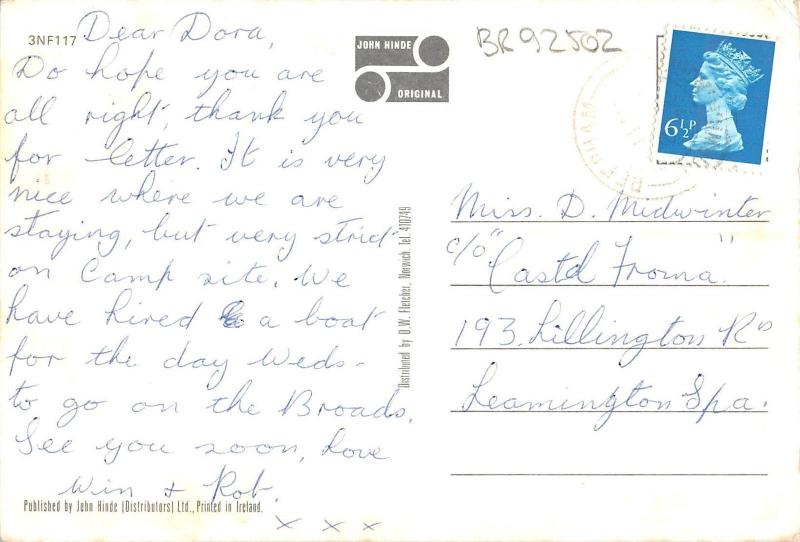 3NF117
Dear Dora,
Do hope you are
all right, thank you
for letter. It is very
nice where we are
staying, but very strict
on Camp site. We
have hired a boat
for the day Weds-
to go on the Broads.
See you soon, love
Win & Rob.
x x x
Published by John Hinde (Distributors) Ltd., Printed in Ireland.
JOHN HINDE
ORIGINAL
Distributed by D.W. Fletcher, Norwich. Tel. 410749
BR92502
6½P
Miss. D. Midwinter
c/o "Castel Froma"
193, Lillington Rd
Leamington Spa.